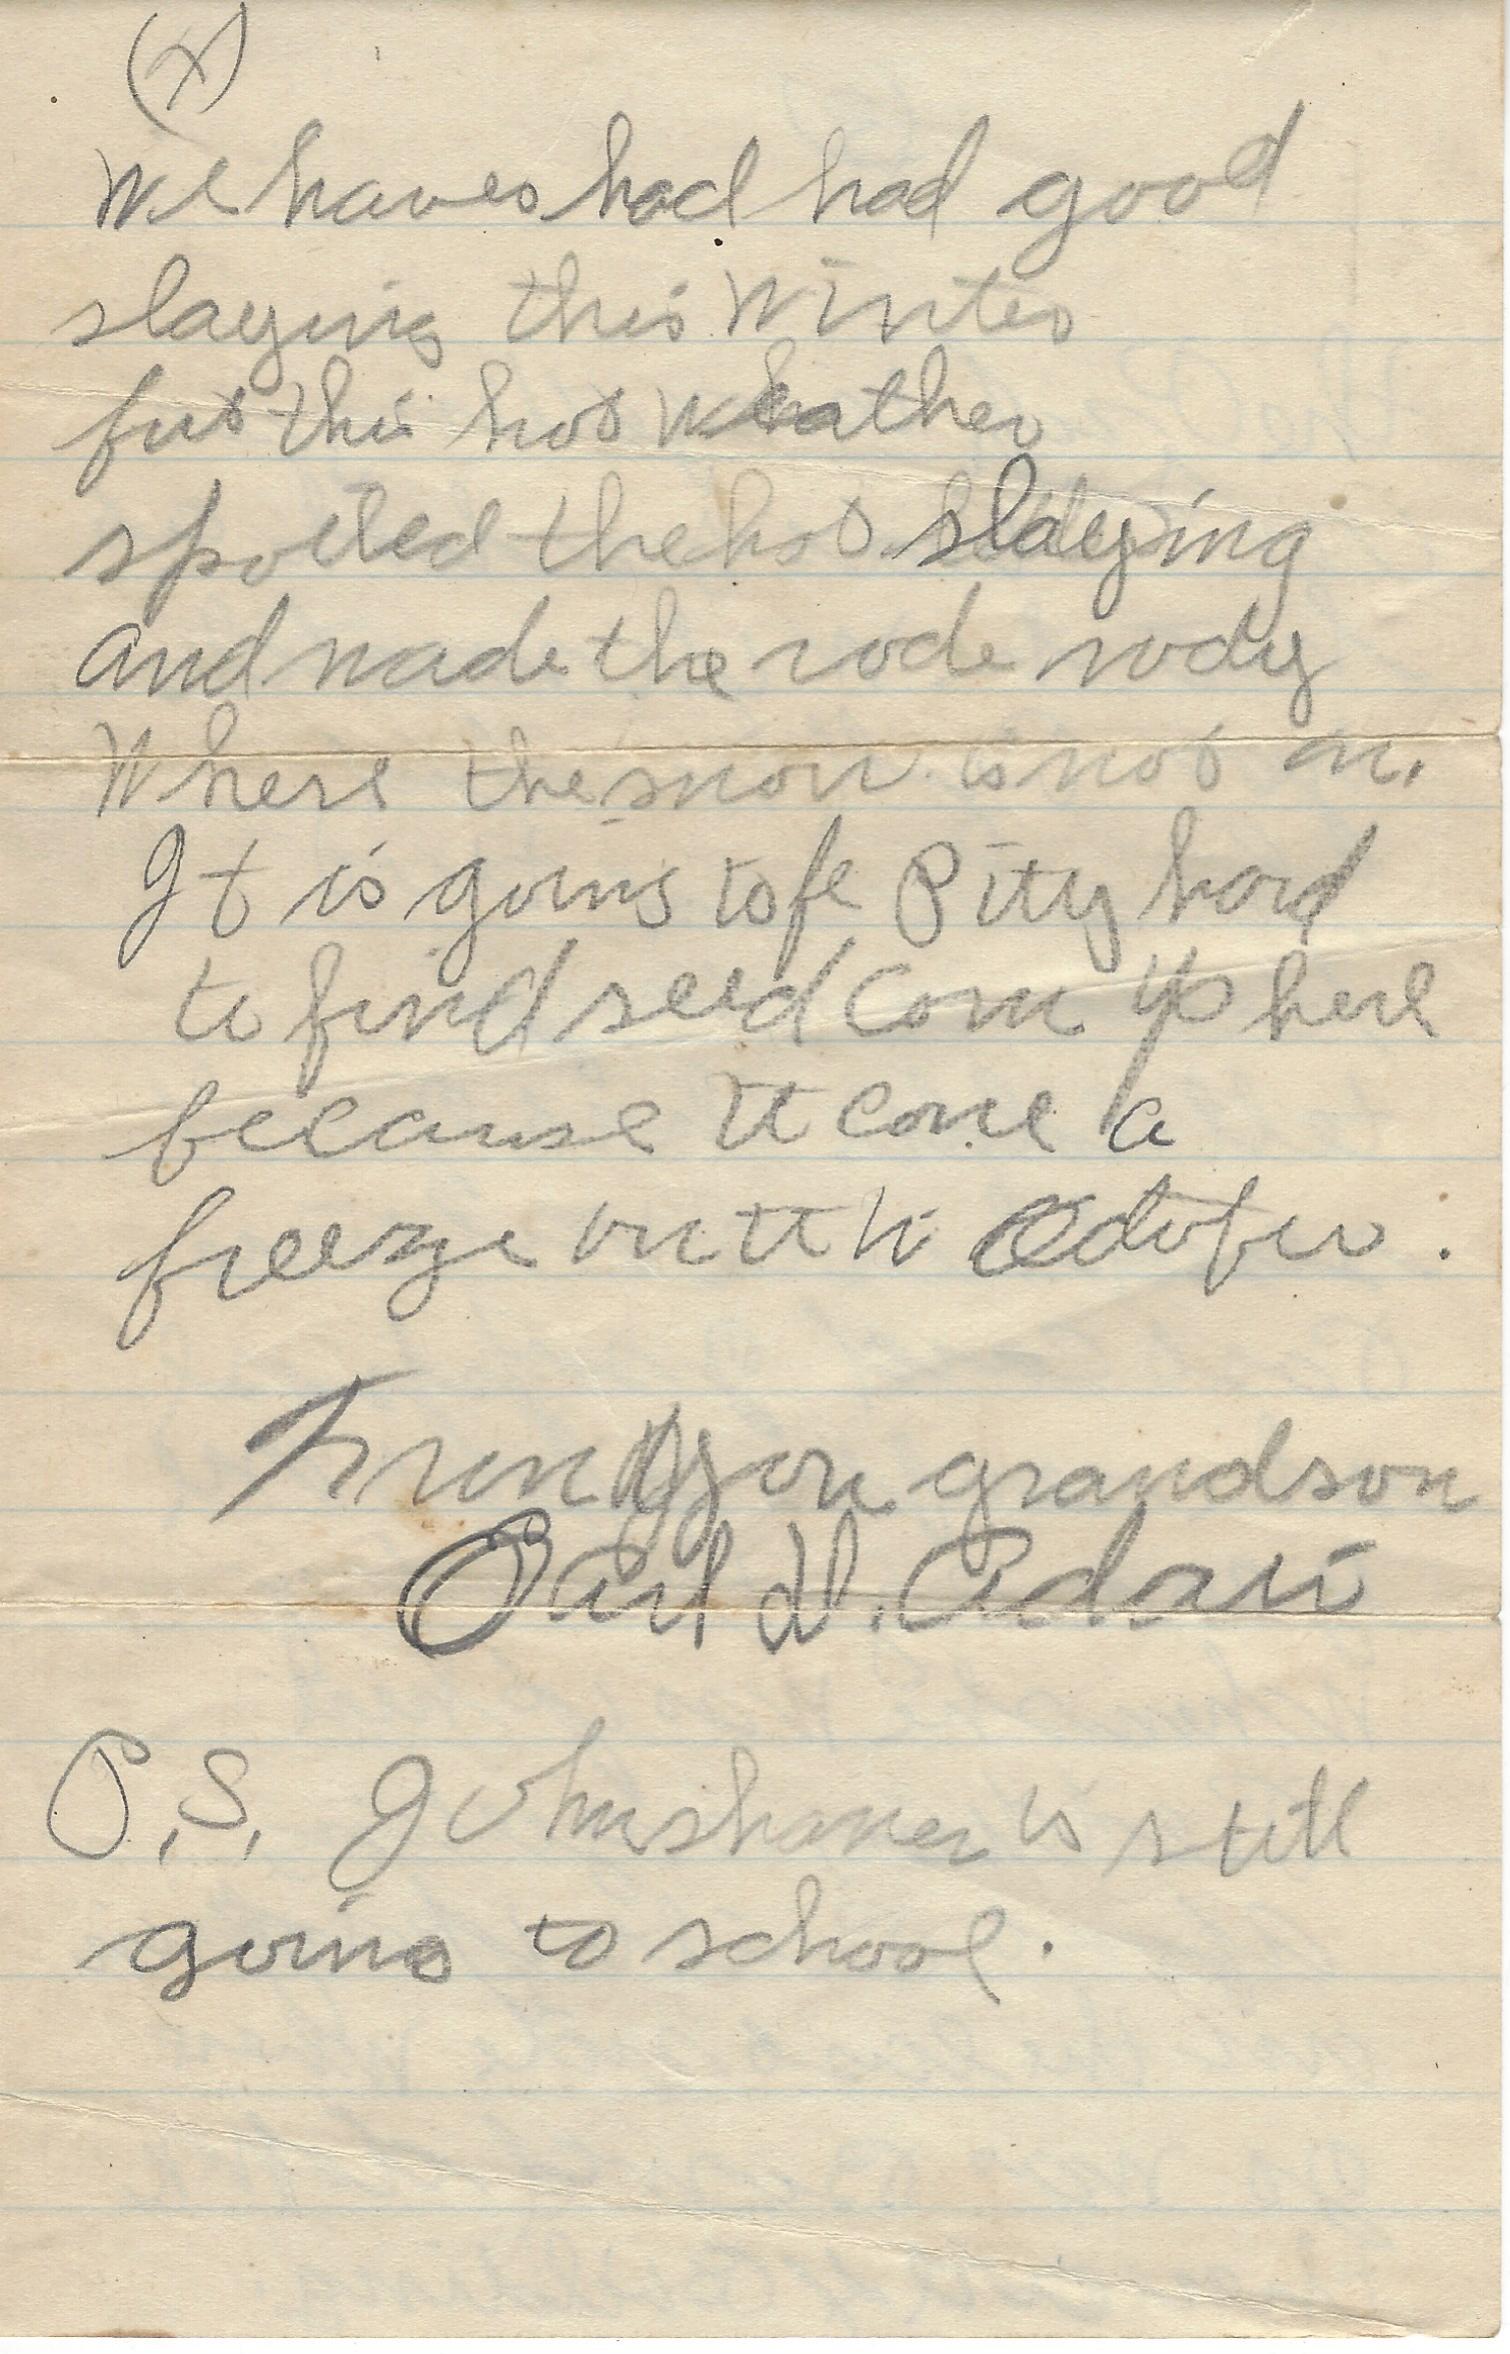 (X)
We haves had had good
slaying this Winter
but this hot weather
spoiled the hot slaying
and made the rode rody
Where the snow is not on.
It is going to be Pitty hard
to find seed corn up here
because it come a
freeze out in October.
From your grandson
Earl W. Adair
P.S. John is still
going to school.